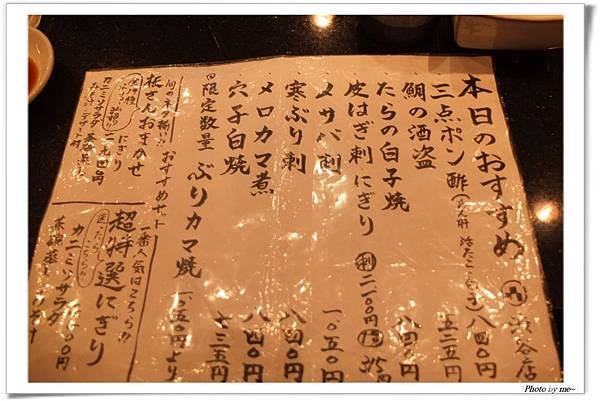 本日のおすすめ 渋谷店
三点ポン酢 八四〇円
鯛の酒盗 五二五円
たらの白子焼 八四〇円
皮はぎ刺 にぎり 刺二一〇〇円
〆サバ刺 一〇五〇円
寒ぶり刺 八四〇円
メロカマ煮 八四〇円
穴子白焼 七三五円
限定数量 ぶりカマ焼 一〇五〇円より
旬のネタ揃い!! おすすめセット
板さんおまかせ
にぎり
カニミソサラダ
一番人気はこちら!!
迷ったらこちら
超特選にぎり
カニミソサラダ
茶碗蒸し
Photo by me~